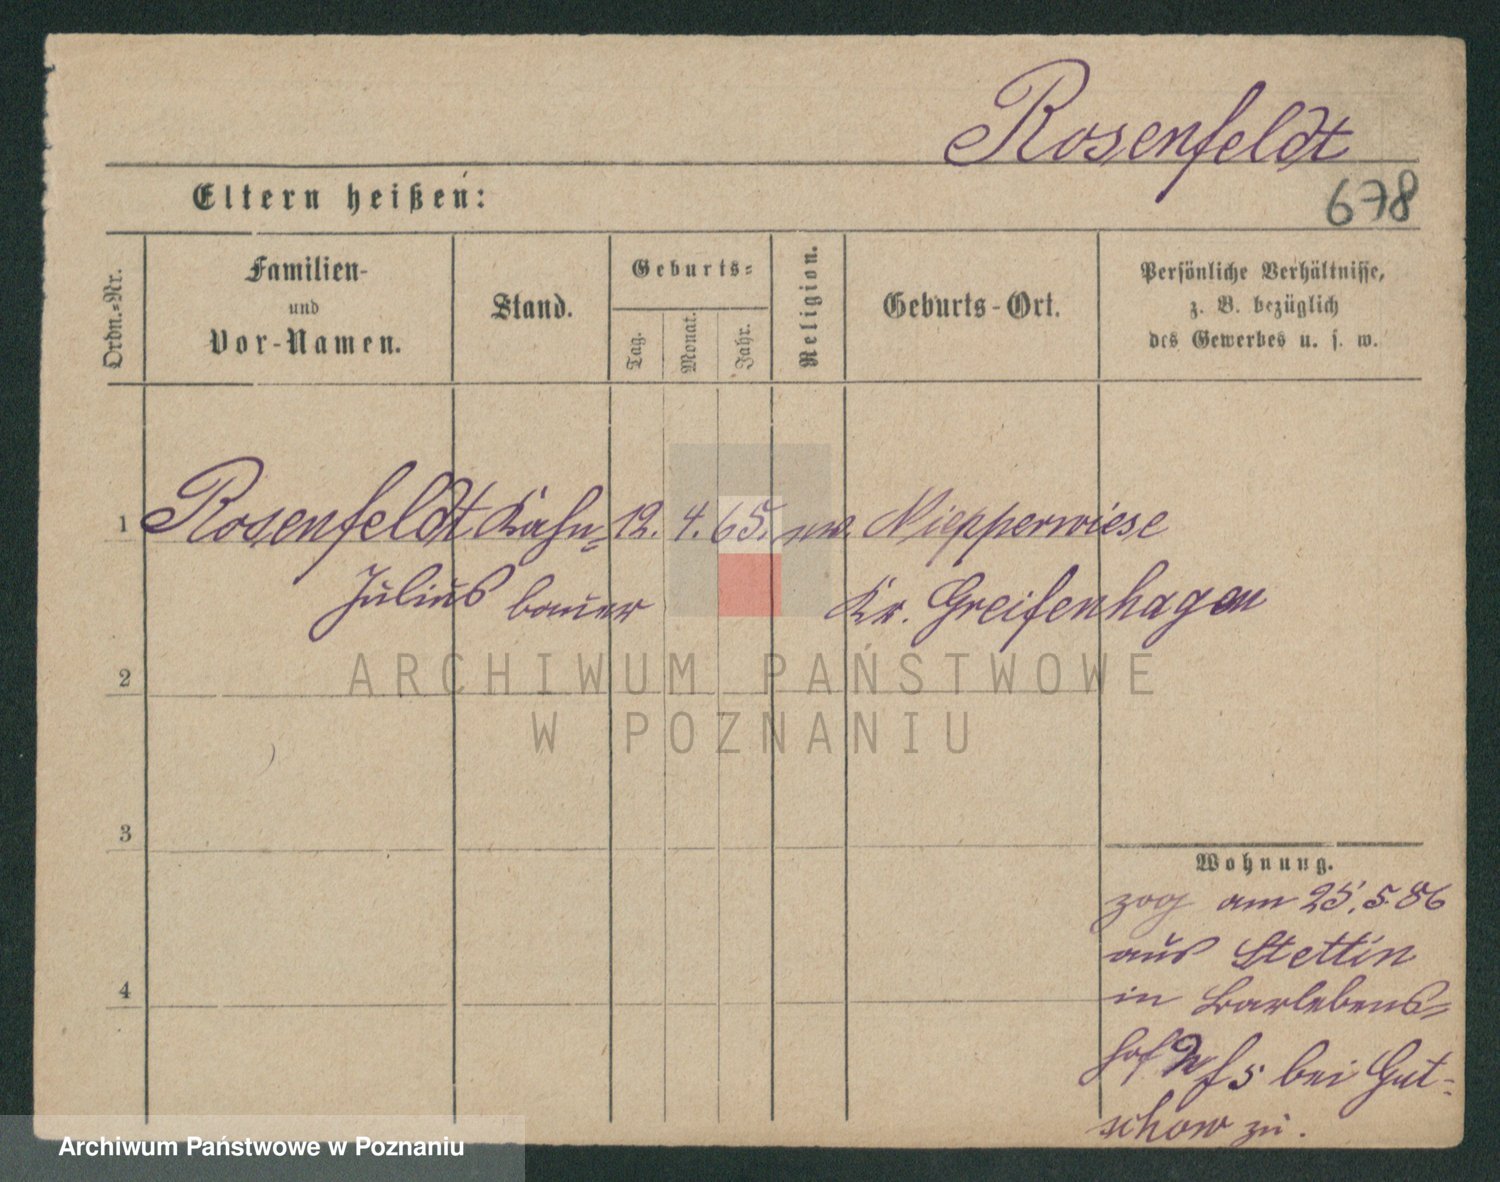 Rosenfeldt
Eltern heißen:
678
Ordn.-Nr.
Familien-
und
Vor-Namen.
Stand.
Geburts-
Tag.
Monat.
Jahr.
Religion.
Geburts-Ort.
Persönliche Verhältnisse,
z. B. bezüglich
des Gewerbes u. s. w.
1 Rosenfeldt Kahn- 12. 4. 65. ev. Niepperwiese
Julius bauer Kr. Greifenhagen
ARCHIWUM PAŃSTWOWE
2
W POZNANIU
3
Wohnung.
zog am 25.5.86
aus Stettin
4
in Barlebens-
hof bei Gut-
schow zu.
Archiwum Państwowe w Poznaniu